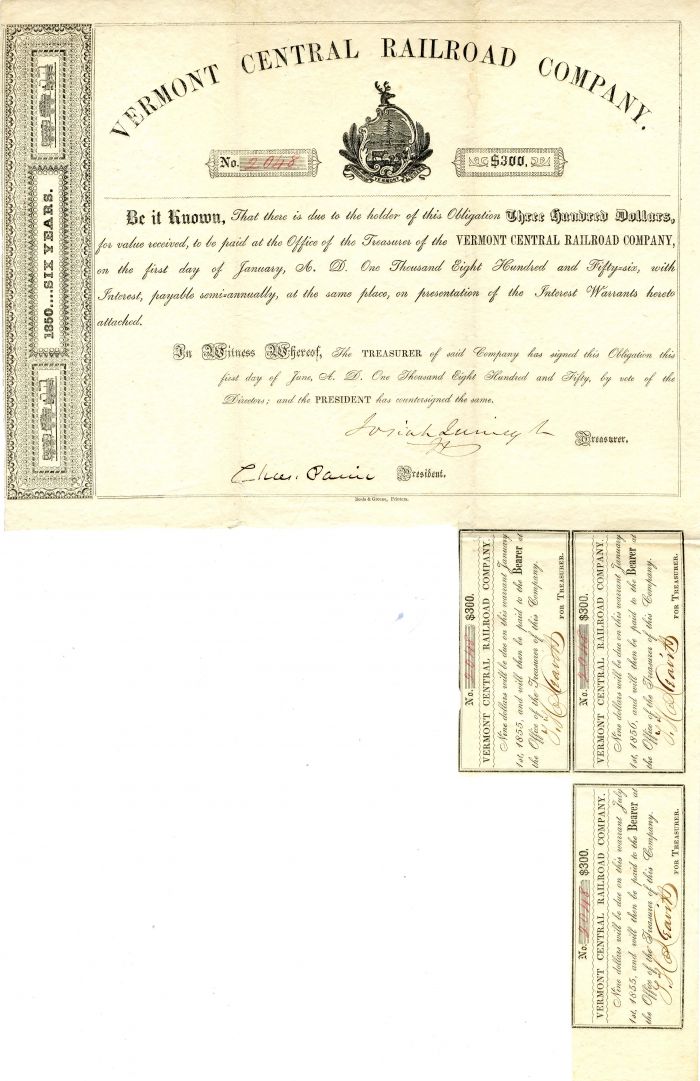 VERMONT CENTRAL RAILROAD COMPANY.
No. 2048
$300.
VERMONT
1850....SIX YEARS.
Be it Known, That there is due to the holder of this Obligation Three Hundred Dollars,
for value received, to be paid at the Office of the Treasurer of the VERMONT CENTRAL RAILROAD COMPANY,
on the first day of January, A. D. One Thousand Eight Hundred and Fifty-six, with
Interest, payable semi-annually, at the same place, on presentation of the Interest Warrants hereto
attached.
In Witness Whereof, The TREASURER of said Company has signed this Obligation this
first day of June, A. D. One Thousand Eight Hundred and Fifty, by vote of the
Directors; and the PRESIDENT has countersigned the same.
Josiah Quincy Jr Treasurer.
Chas. Paine President.
Beals & Greene, Printers.
No. 2048 $300.
VERMONT CENTRAL RAILROAD COMPANY.
Nine dollars will be due on this warrant January
1st, 1855, and will then be paid to the Bearer at
the Office of the Treasurer of this Company.
FOR TREASURER.
No. 2048 $300.
VERMONT CENTRAL RAILROAD COMPANY.
Nine dollars will be due on this warrant January
1st, 1856, and will then be paid to the Bearer at
the Office of the Treasurer of this Company.
FOR TREASURER.
No. 2048 $300.
VERMONT CENTRAL RAILROAD COMPANY.
Nine dollars will be due on this warrant July
1st, 1855, and will then be paid to the Bearer at
the Office of the Treasurer of this Company.
FOR TREASURER.